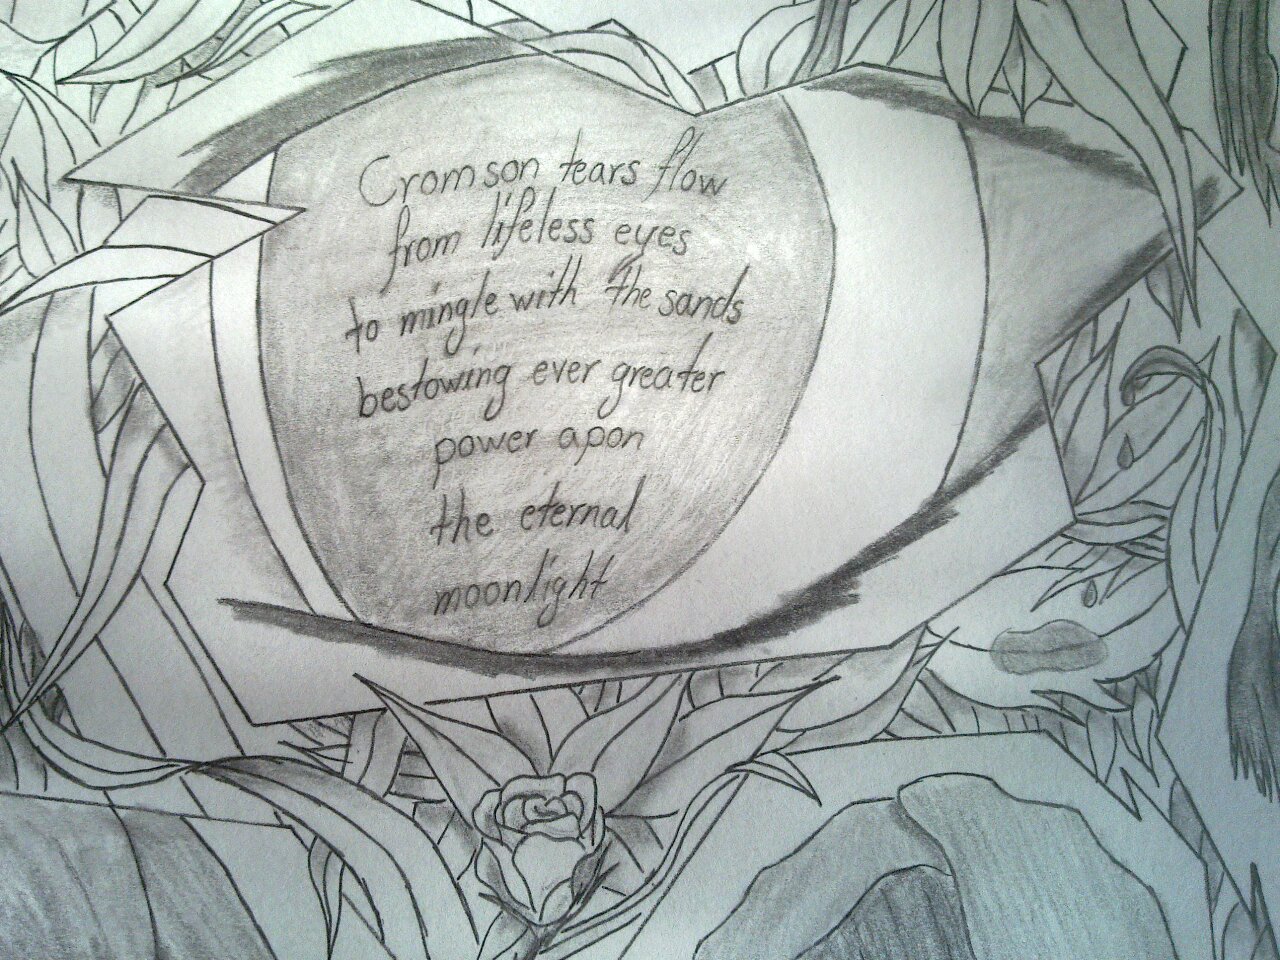 Cromson tears flow
from lifeless eyes
to mingle with the sands
bestowing ever greater
power apon
the eternal
moonlight